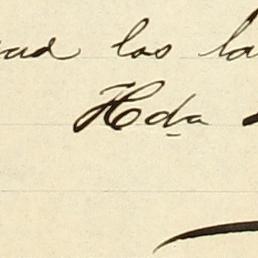 los la
Hda